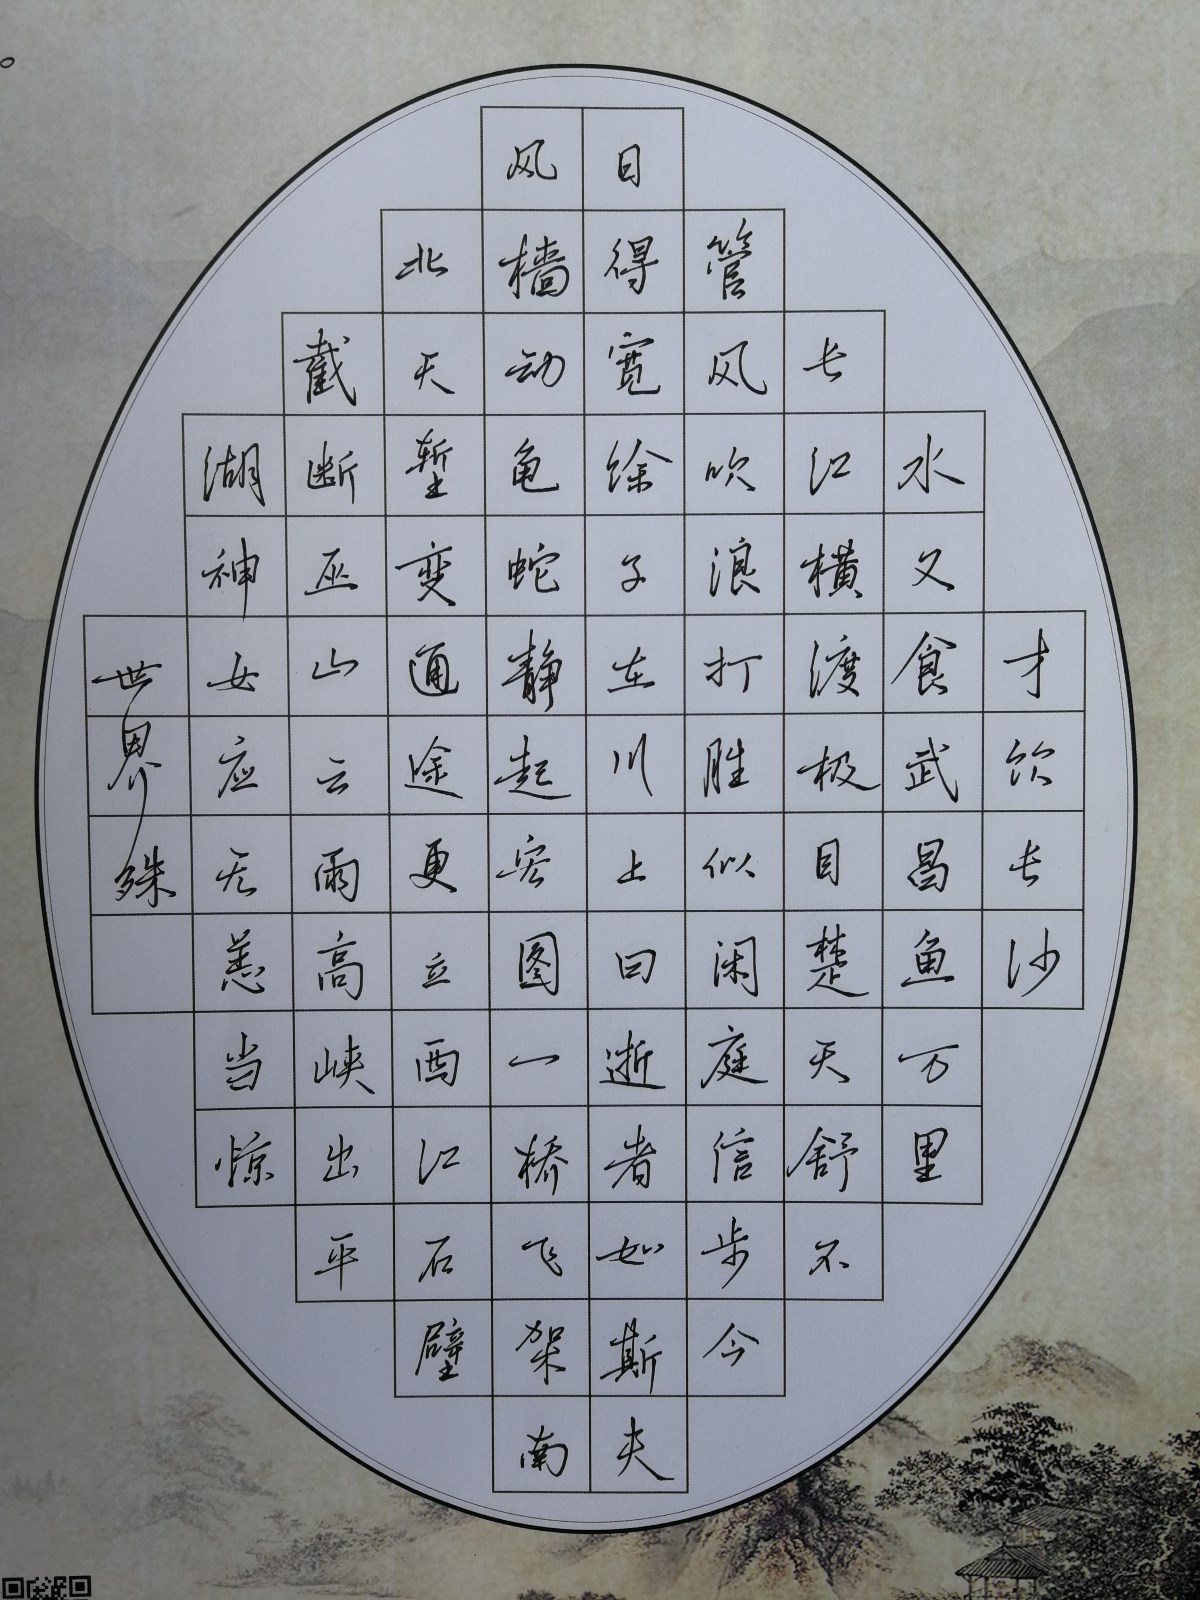 才饮长沙
水又食武昌鱼万里
长江横渡极目楚天舒不
管风吹浪打胜似闲庭信步今
日得宽馀子在川上曰逝者如斯夫
风樯动龟蛇静起宏图一桥飞架南
北天堑变通途更立西江石壁
截断巫山云雨高峡出平
湖神女应无恙当惊
世界殊